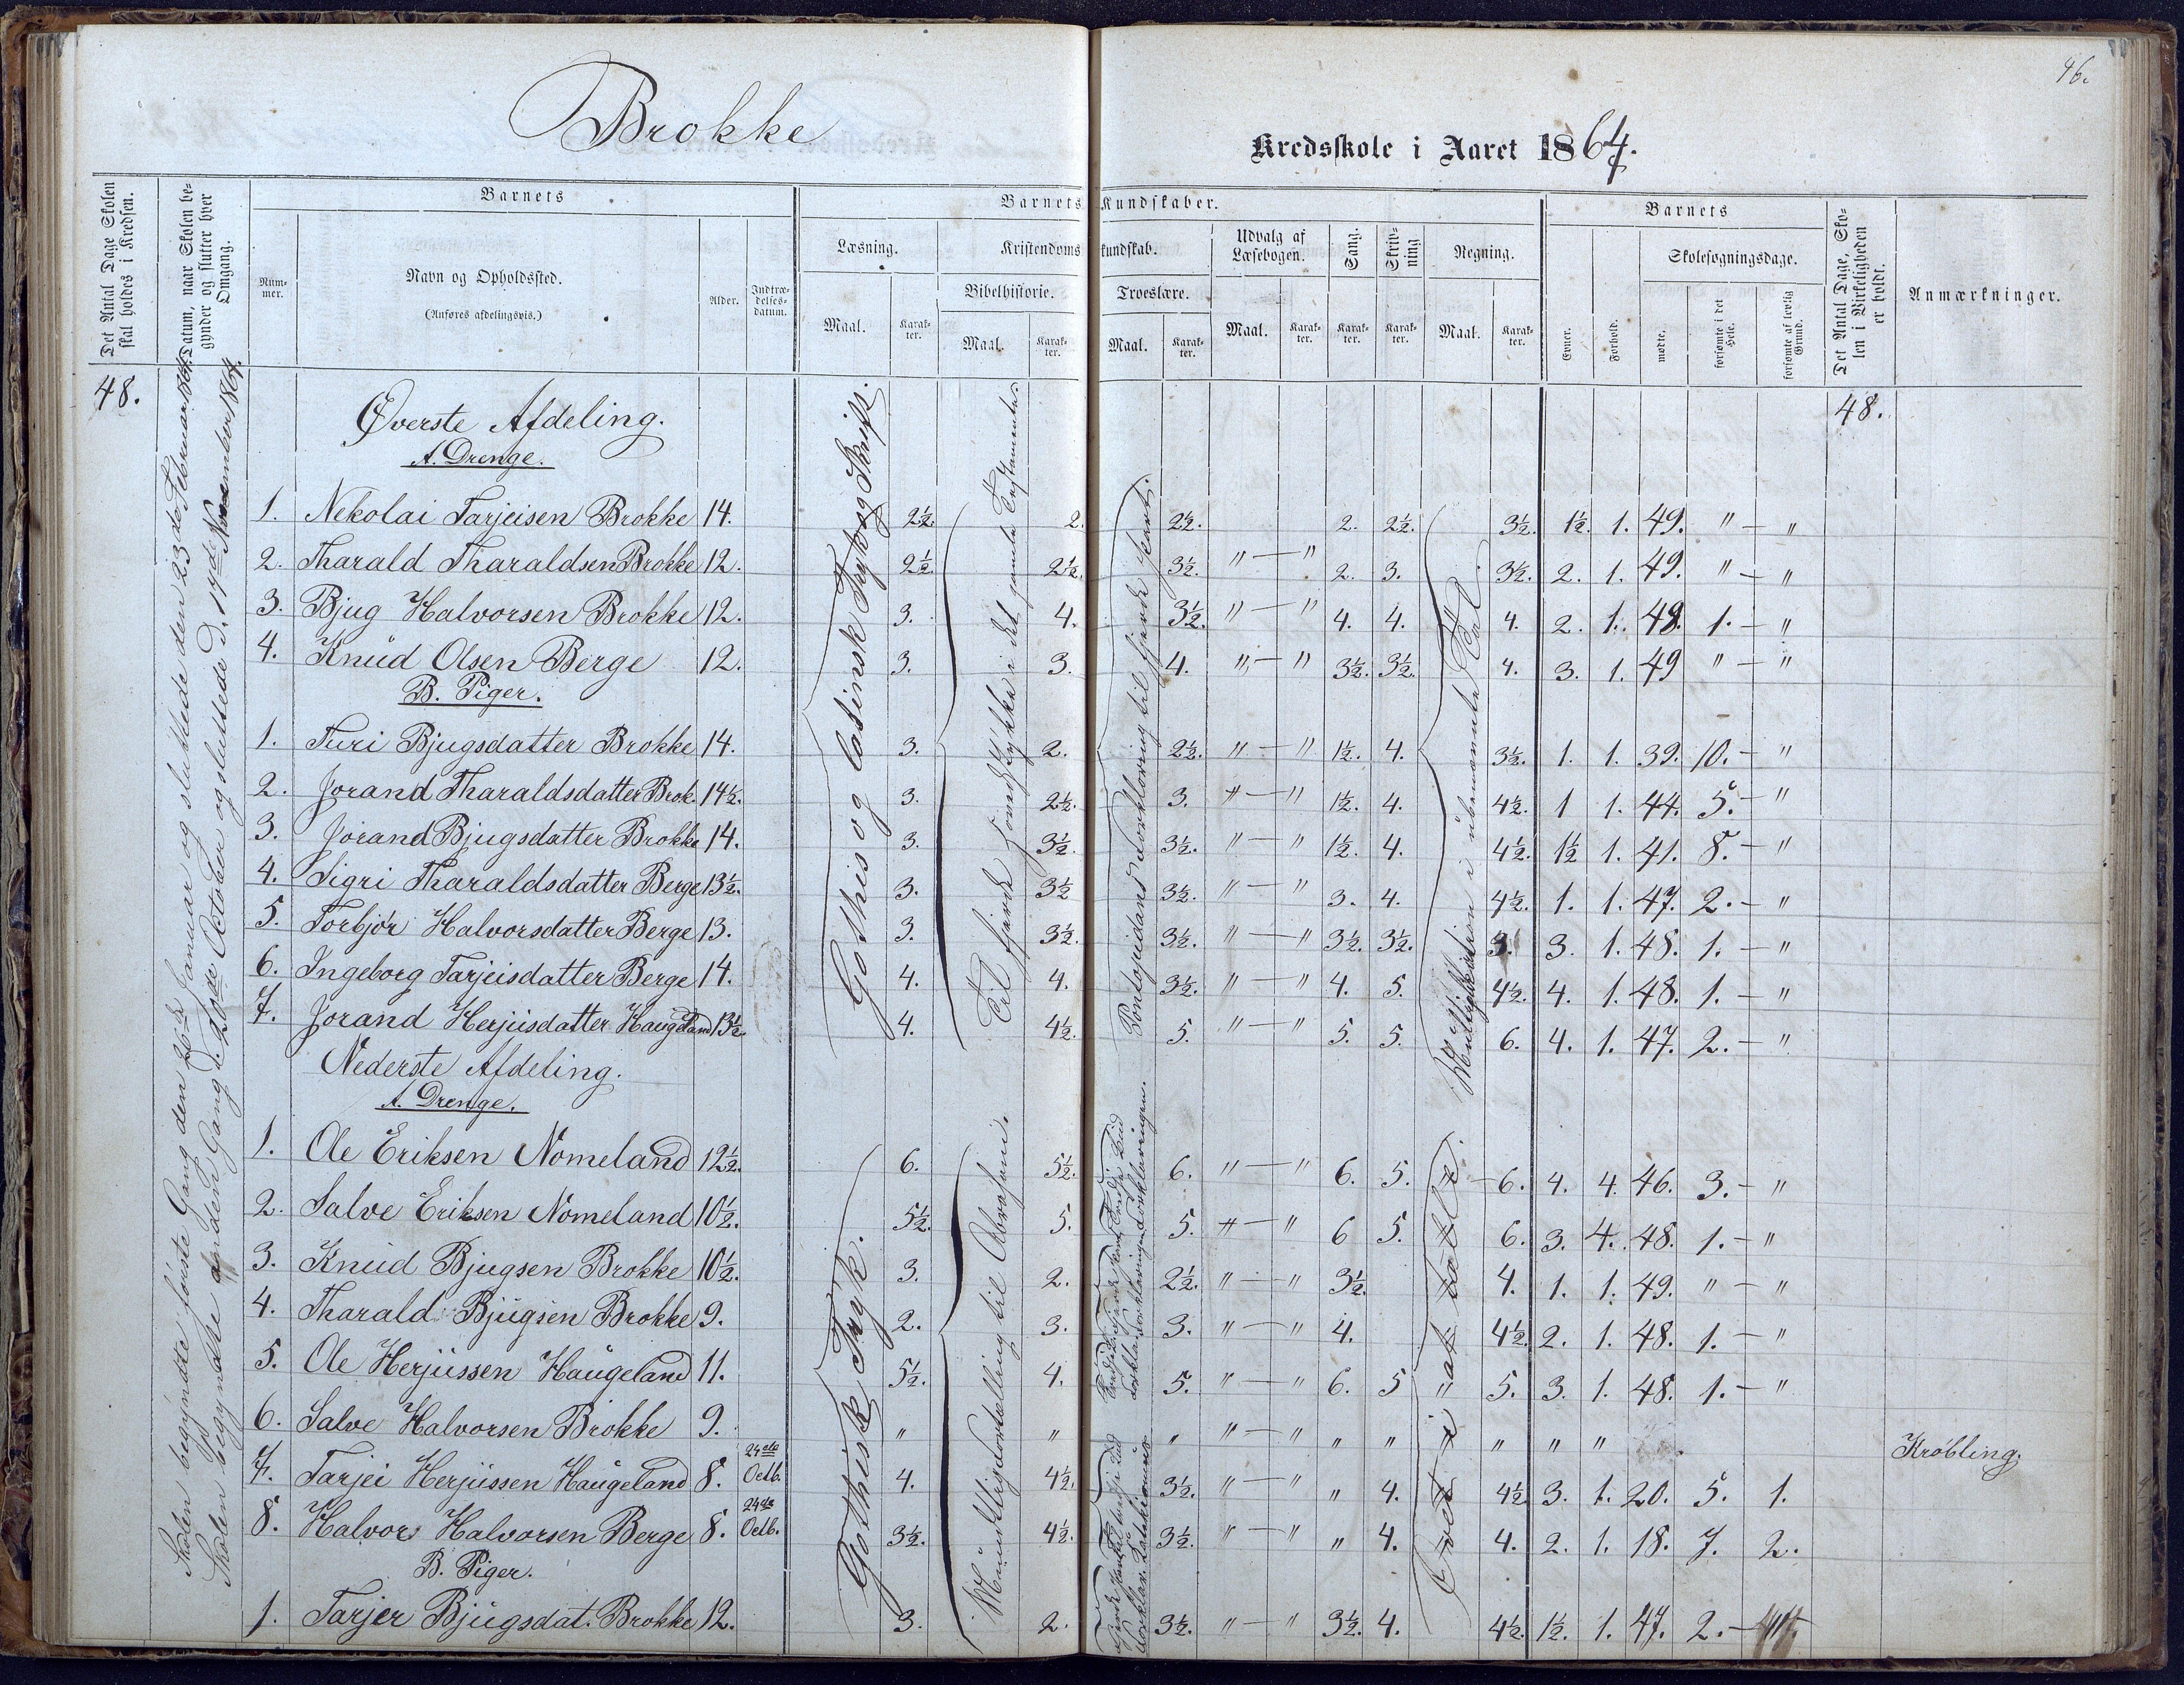 46.
Brokke
Kredsskole i Aaret 1864.
Det Antal Dage Skolen skal holdes i Kredsen.
Datum, naar Skolen begynder og slutter hver Omgang.
Barnets
Nummer.
Navn og Opholdssted.
(Anføres afdelingsvis.)
Alder.
Indtrædelsesdatum.
Barnets Kundskaber.
Læsning.
Maal.
Karakter.
Kristendomskundskab.
Bibelhistorie.
Maal.
Karakter.
Troeslære.
Maal.
Karakter.
Udvalg af Læsebogen.
Maal.
Karakter.
Sang.
Karakter.
Skrivning
Karakter.
Regning.
Maal.
Karakter.
Barnets
Evner.
Forhold.
Skolesøgningsdage.
mødte.
forsømte i det Hele.
forsømte af lovlig Grund.
Det Antal Dage, Skolen i Virkeligheden er holdt.
Anmærkninger.
48.
48.
Skolen begyndte første Gang den Januar og sluttede den 23de Februar 1864.
Skolen begyndte anden Gang d. 20de October og sluttede d. 17de November 1864.
Gothisk og latinsk Tryk og Skrift.
Til fjerde Hovedstykke i det gamle Testamente.
Pontoppidans Forklaring til fjerde Part.
Multiplikation i ubenævnte Tal.
Øverste Afdeling.
A. Drenge.
1. Nekolai Tarjeisen Brokke 14. 2½. 2. 2½. 2. 2½. 3½. 1½. 1. 49. " - "
2. Tharald Tharaldsen Brokke 12. 2½. 2½. 3½. " - " 2. 3. 3½. 2. 1. 49. " - "
3. Bjug Halvorsen Brokke 12. 3. 4. 3½. " - " 4. 4. 4. 2. 1. 48. 1. - "
4. Knud Olsen Berge 12. 3. 3. 4. " - " 3½. 3½. 4. 3. 1. 49 " - "
B. Piger.
1. Turi Bjugsdatter Brokke 14. 3. 2. 2½. " - " 1½. 4. 3½. 1. 1. 39. 10. - "
2. Jorand Tharaldsdatter Brok. 14½. 3. 2½. 3. " - " 1½. 4. 4½. 1 1. 44. 5. - "
3. Jorand Bjugsdatter Brokke 14. 3. 3½. 3½. " - " 1½. 4. 4½. 1½ 1. 41. 8. - "
4. Sigri Tharaldsdatter Berge 13½. 3. 3½ 3½. " - " 3. 4. 4½. 1. 1. 47. 2. - "
5. Torbjør Halvorsdatter Berge 13. 3. 3½. 3½. " - " 3½. 3½. 3. 3. 1. 48. 1. - "
6. Ingeborg Tarjeisdatter Berge 14. 4. 4. 3½. " - " 4. 5. 4½. 4. 1. 48. 1. - "
7. Jorand Herjusdatter Haugeland 13½ 4. 4½. 5. " - " 5. 5. 6. 4. 1. 47. 2. - "
Nederste Afdeling.
A. Drenge.
Gothisk Tryk.
Mundtlig Fortælling til Abraham.
1. Ole Eriksen Nomeland 12½. 6. 5½. 6. " - " 6. 5. 6. 4. 4. 46. 3. - "
2. Salve Eriksen Nomeland 10½. 5½. 5. 5. " - " 6 5. 6. 3. 4. 48. 1. - "
3. Knud Bjugsen Brokke 10½. 3. 2. 2½. " - " 3½. 4. 1. 1. 49. " - "
4. Tharald Bjugsen Brokke 9. 2. 3. 3. " - " 4. 4½. 2. 1. 48. 1. - "
5. Ole Herjussen Haugeland 11. 5½. 4. 5. " - " 6. 5 5. 3. 1. 48. 1. - "
6. Salve Halvorsen Brokke 9. " " " " - " " " " " " Krøbling.
7. Tarjei Herjussen Haugeland 8. 24de Octb. 4. 4½. 3½. " - " " 4. 4½ 3. 1. 20. 5. 1.
8. Halvor Halvorsen Berge 8. 24de Octb. 3½. 4½. 3½. " - " " 4. 4. 2. 1. 18. 7. 2.
B. Piger.
1. Tarjer Bjugsdat. Brokke 12. 3. 2. 3½. " - " 3½. 4. 4½. 1½. 1. 47. 2. -